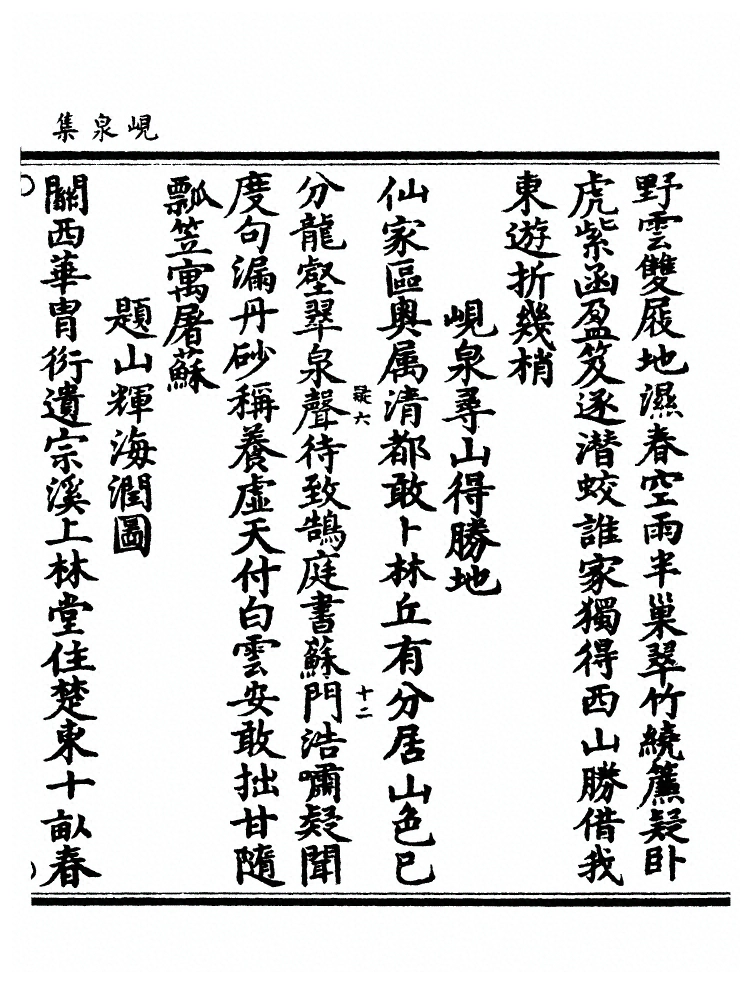 峴泉集
野雲雙屐地濕春空雨半巢翠竹繞簷疑卧
虎紫函盈笈逐潛蛟誰家獨得西山勝借我
東遊折幾梢
峴泉尋山得勝地
仙家區奥属清都敢卜林丘有分居山色已
分龍壑翠泉聲待致鵠庭書蘇門浩嘯疑聞
疑六
十二
度句漏丹砂稱養虚天付白雲安敢拙甘隨
瓢笠寓屠蘇
題山輝海潤圖
關西華胄衍遺宗溪上林堂住楚東十畝春